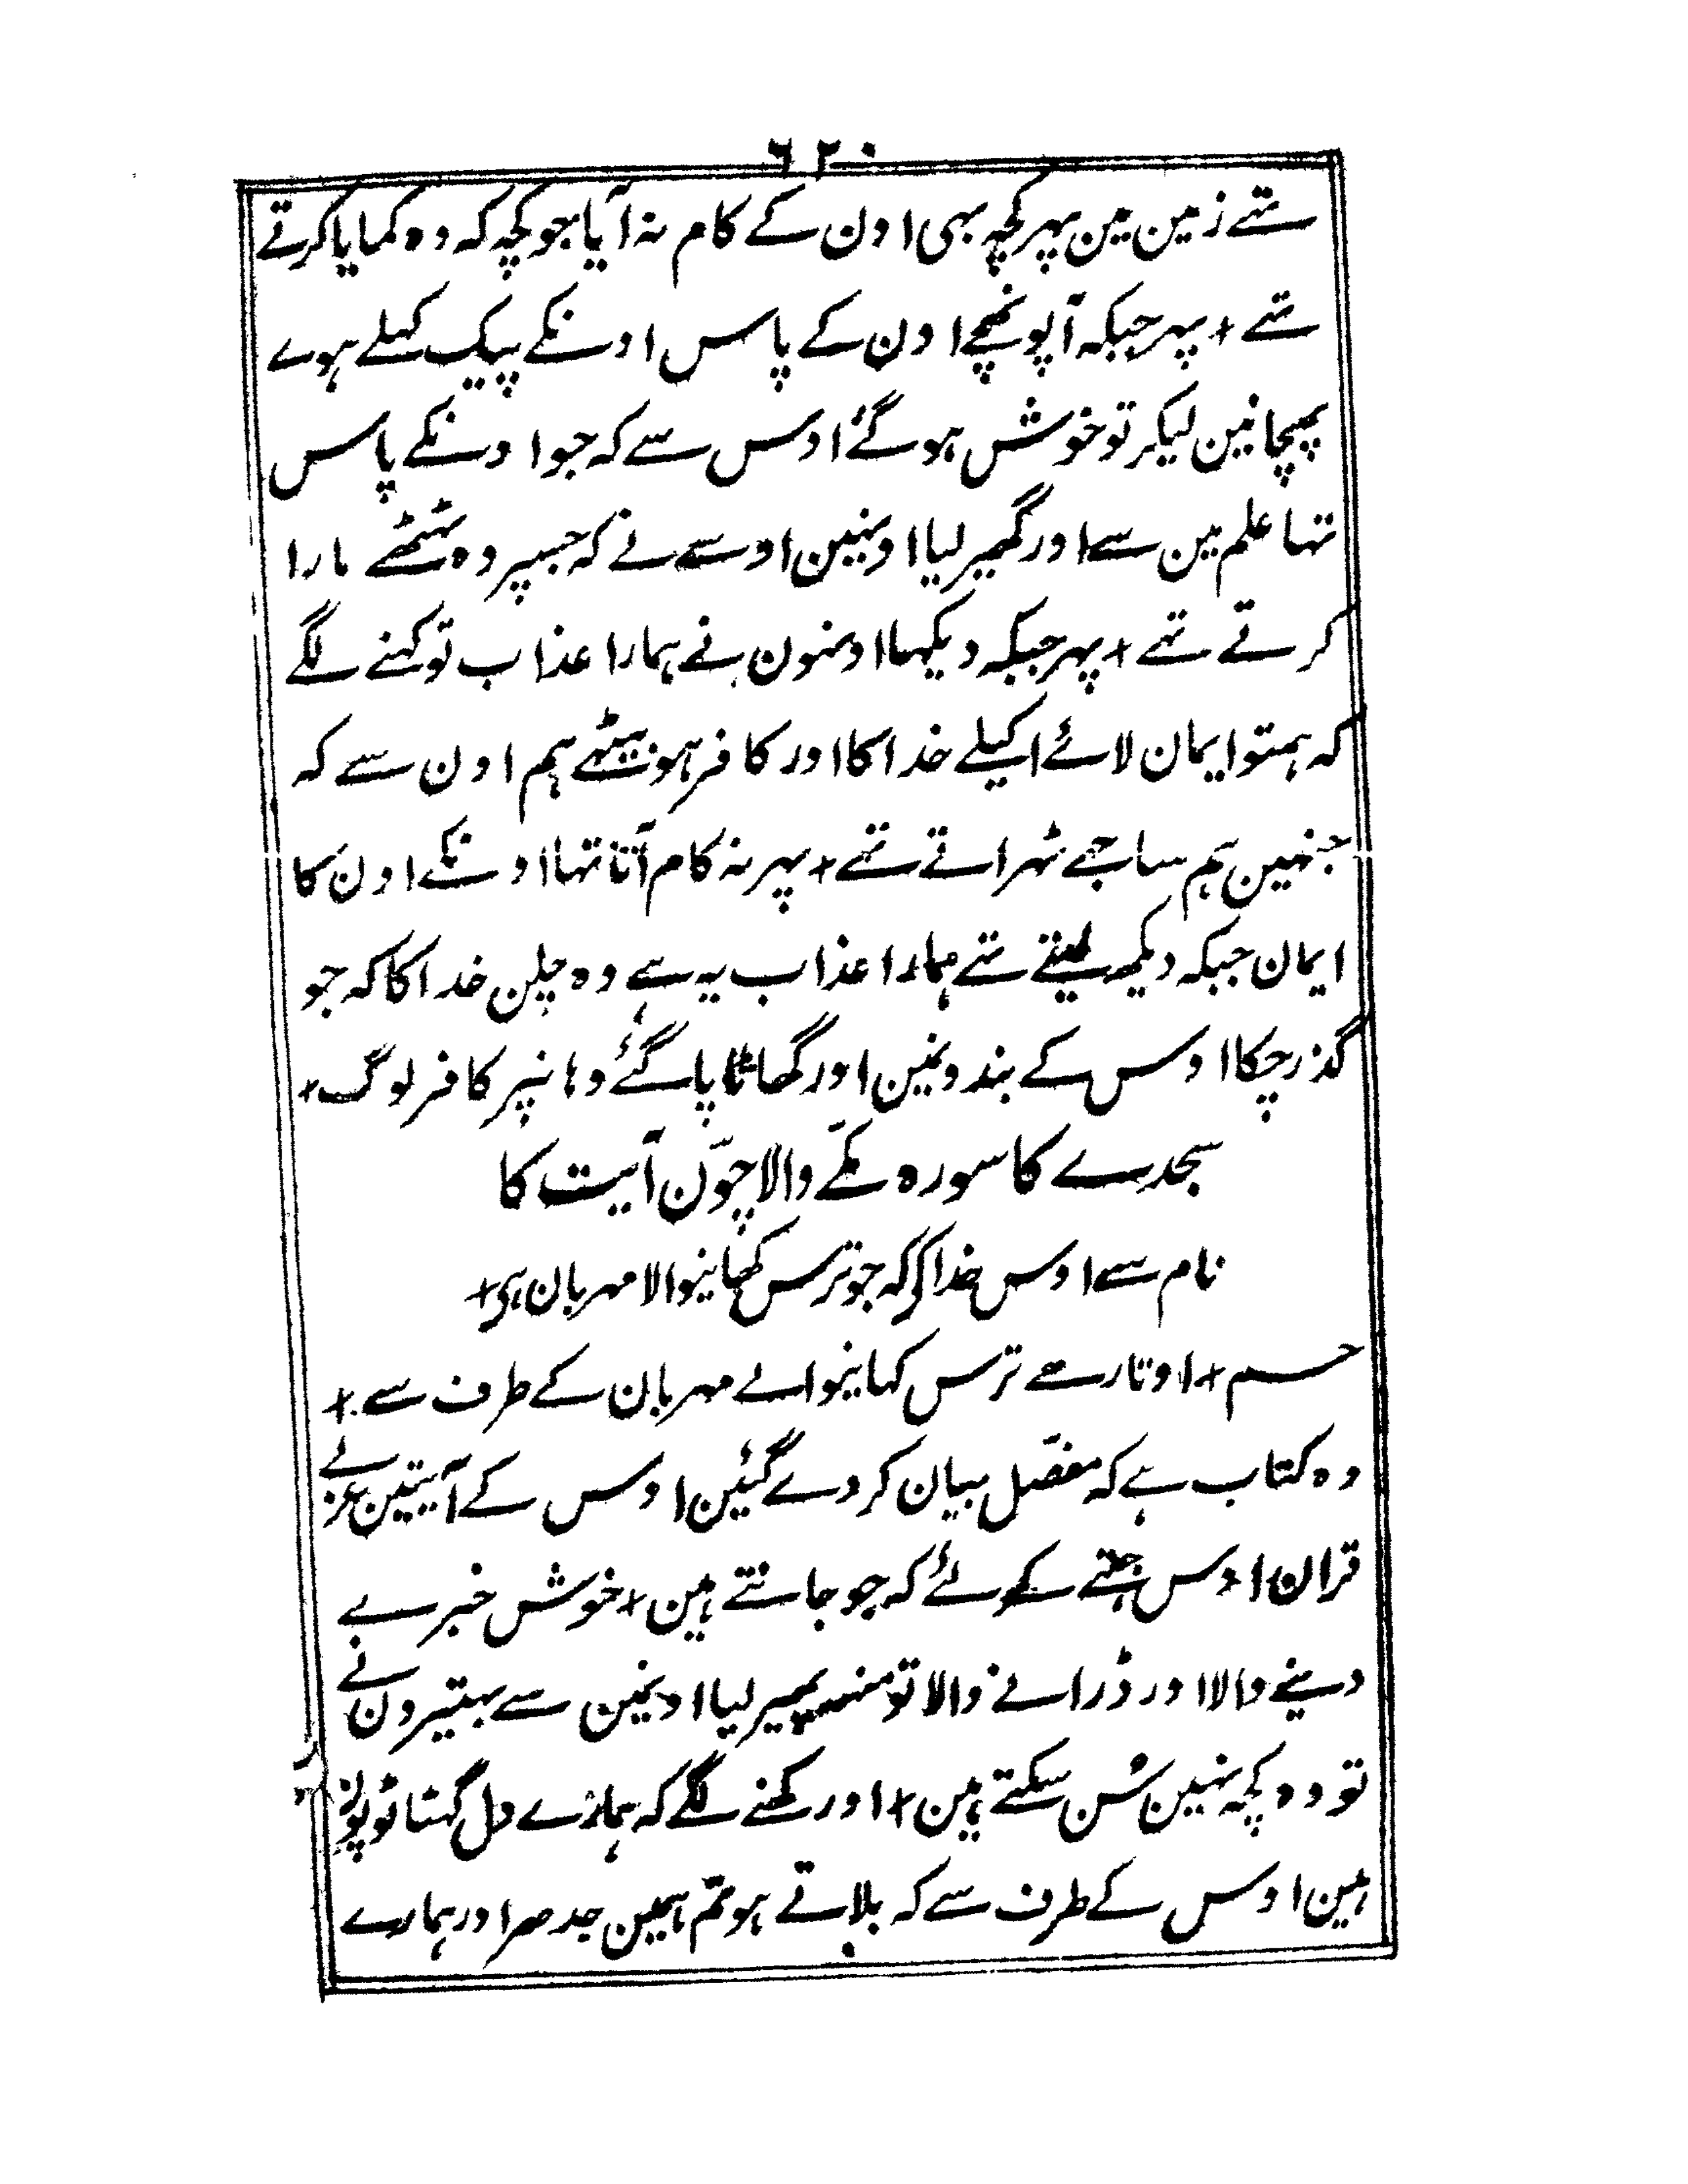 ۶۲۰
تہے زمین مین پہر کچہہ بہی اون کے کام نہ آیا جو کچہہ کہ وہ کمایا کرتے
تہے + پہر جبکہ آپونہچے اون کے پاس اونکے پیک کہلے ہوے
پہچانین لیکر تو خوش ہو گئے اوس سے کہ جو اونکے پاس
تہا علم مین سے اور گھیر لیا اونہین اوسے نے کہ جسپر وہ ٹہٹھے مارا
کرتے تہے + پہر جبکہ دیکہا اونہون نے ہمارا عذاب تو کہنے لگے
کہ ہمتو ایمان لائے اکیلے خدا کا اور کافر ہو بیٹھے ہم اون سے کہ
جنہین ہم ساجھے ٹہراتے تہے + پہر نہ کام آتا تہا اونکے اون کا
ایمان جبکہ دیکھ لیتے تہے ہمارا عذاب یہ ہے وہ چلن خدا کا کہ جو
گذر چکا اوس کے بندونین اور گھاٹا پا گئے وہانپر کافر لوگ +
سجدے کا سورہ مکّے والا چوّن آیت کا
نام سے اوس خدا کی کہ جو ترس کھانیوالا مہربان ہی +
حٰم + اوتار ہے ترس کہانیوالے مہربان کے طرف سے +
وہ کتاب ہے کہ مفصّل بیان کر دے گئین اوس کے آیتین عربے
قران اوس جتھے کے لئے کہ جو جانتے ہین + خوش خبرے
دینے والا اور ڈرانے والا تو منہہ پھیر لیا اونہین سے بہتیرون نے
تو وہ کچہ نہین سُن سکتے ہین + اور کھنے لگے کہ ہمارے دل گہٹا ٹوپ
ہین اوس کے طرف سے کہ بلاتے ہو تم ہمین جدھر اور ہمارے